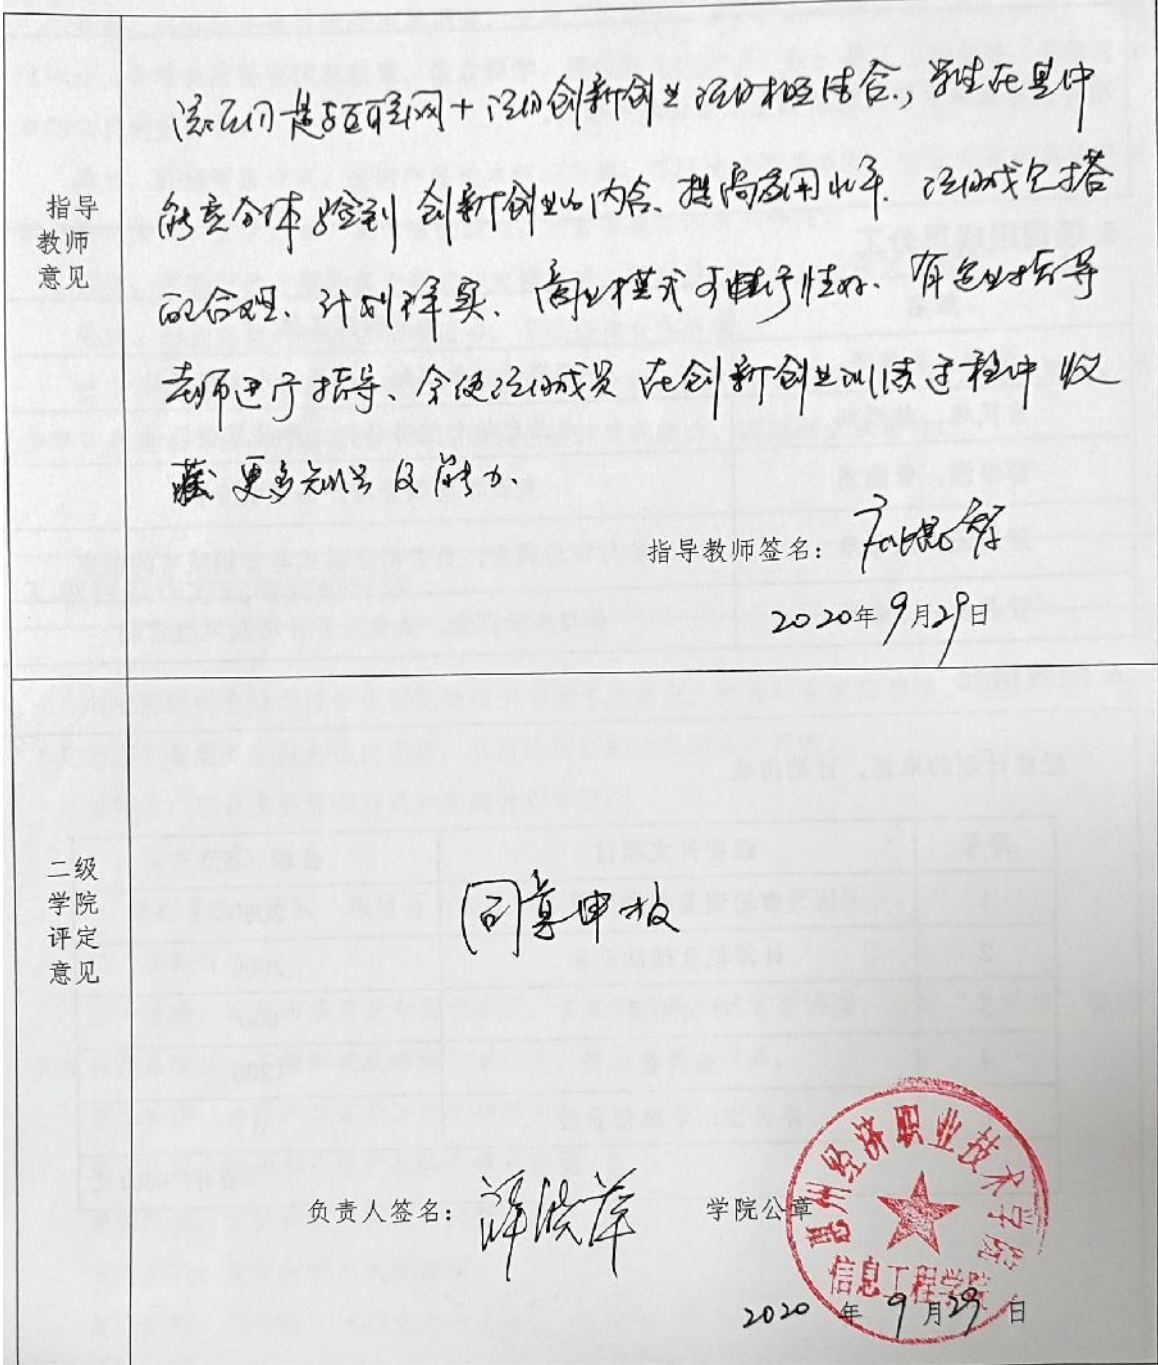 指导
教师
意见
该项目是与互联网+项目创新创业项目相结合,学生在其中
能充分体验到创新创业的内含、提高应用水平.项目成员搭
配合理、计划详实、商业模式可性好、有企业指导
老师进行指导、会使项目成员在创新创业训练过程中收
藏更多知识及能力.
指导教师签名:
2020年9月29日
二级
学院
评定
意见
同意申报
负责人签名:
学院公章
惠州经济职业技术学院
信息工程学院
2020年9月29日